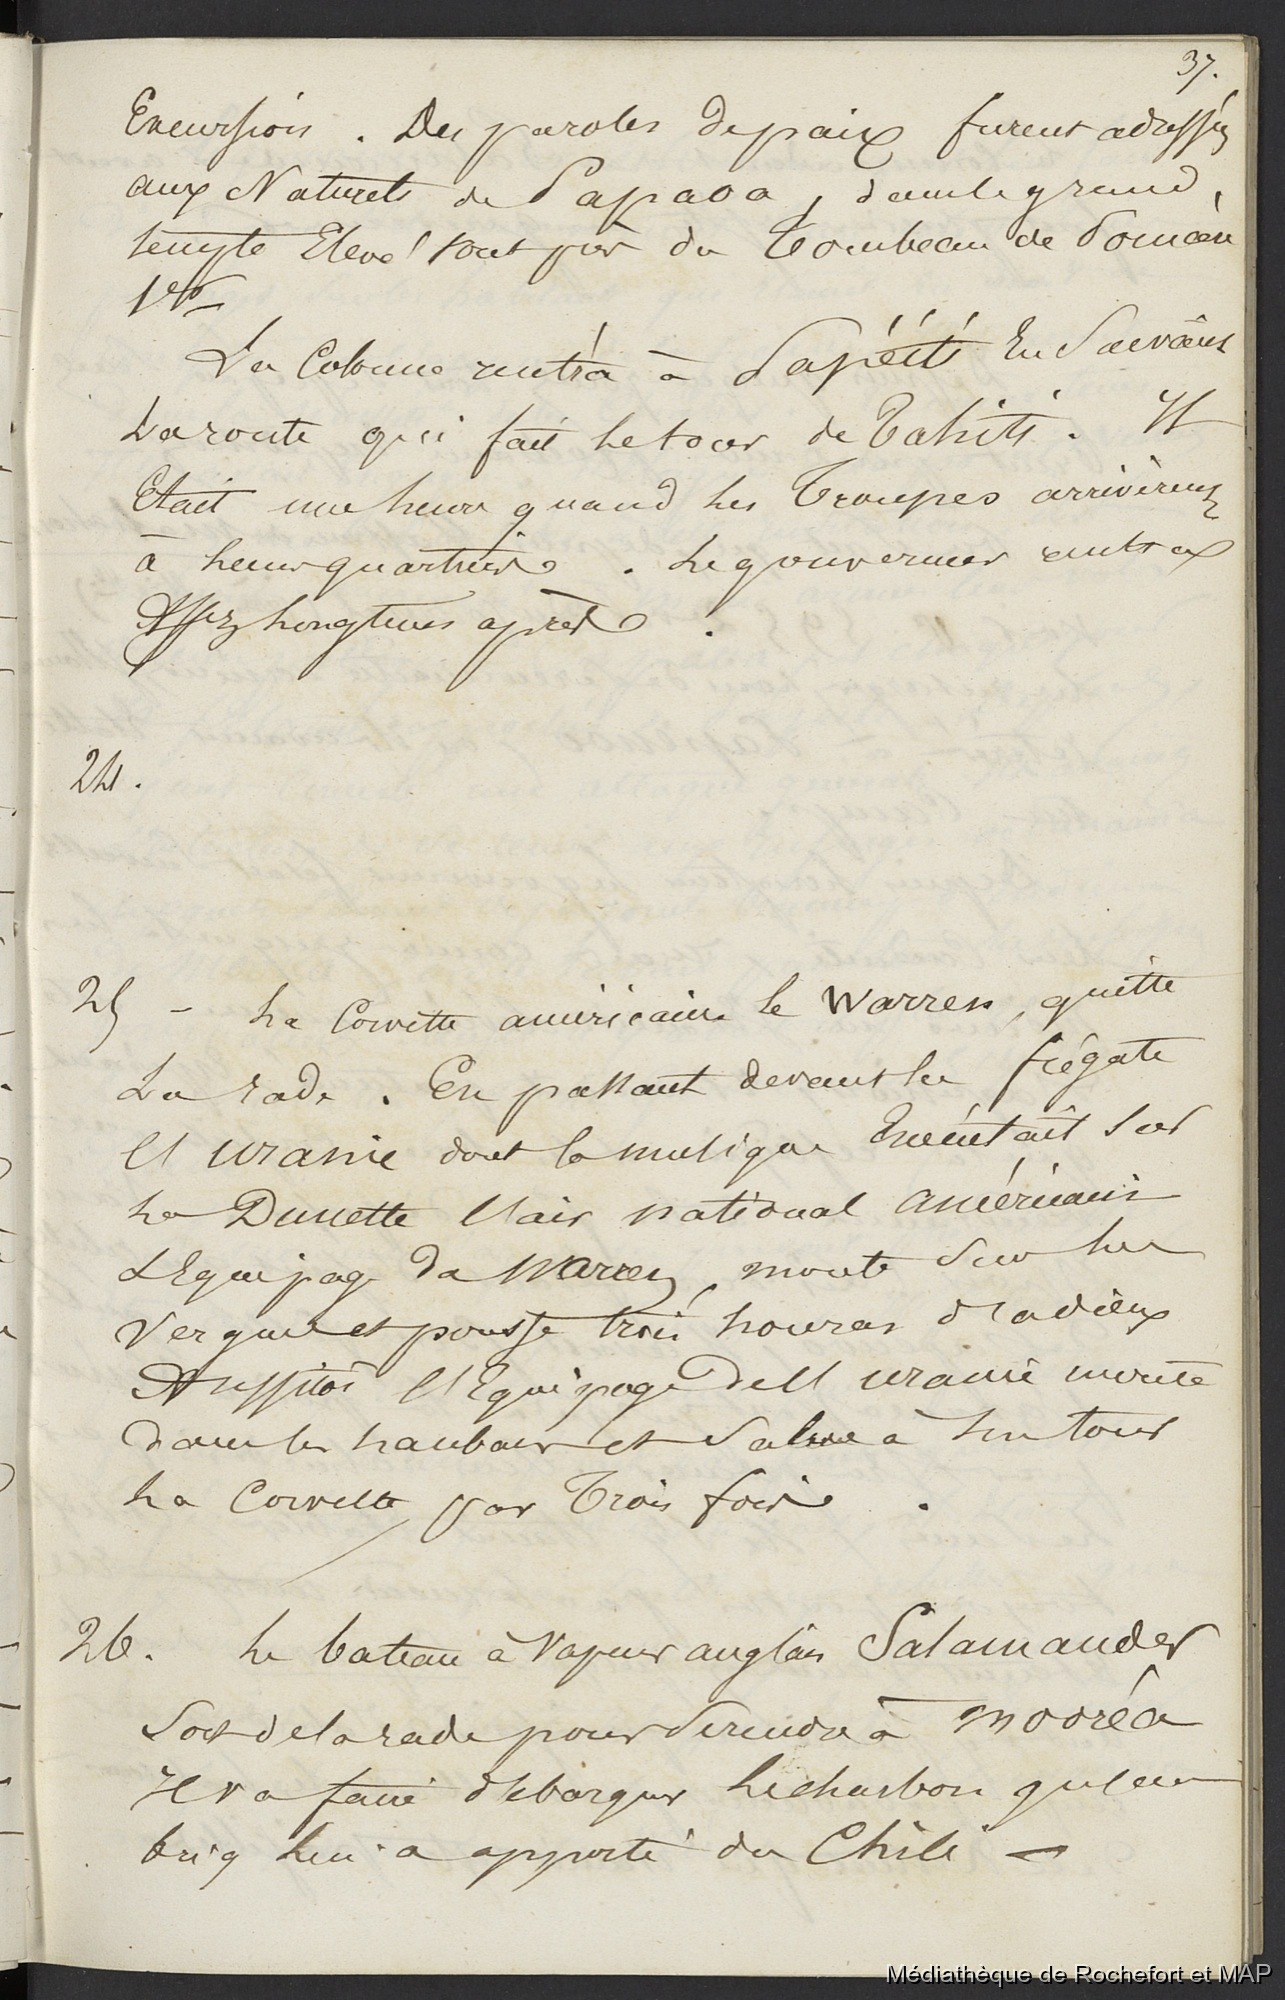 37.
Excursion. Des paroles de paix furent adressés
aux Naturels de Papaoa, dans le grand
temple Elevé tout près du Tombeau de Pomaré
1er
La Colonne rentra à Papéété En Suivant
La route qui fait le tour de Tahiti. Il
Etait une heure quand les Troupes arrivèrent
à leurs quartiers. Le gouverneur rentra
Assez longtems après.
24.
25 - La Corvette américaine le Warren, quitte
La rade. En passant devant la frégate
l'uranie dont la musique Exécutait Sur
La Dunette l'air national américain
L'Equipage du Warren, monte Sur les
Vergues et pousse trois houras d'adieux
Aussitôt l'Equipage de l'uranie monte
dans les haubans et Salue à Son tour
La Corvette par Trois fois.
26. Le bateau à Vapeur anglais Salamander
Sort de la rade pour Se rendre à Mooréa
Il va faire débarquer le charbon qu'un
brig lui a apporté du Chili -
Médiathèque de Rochefort et MAP